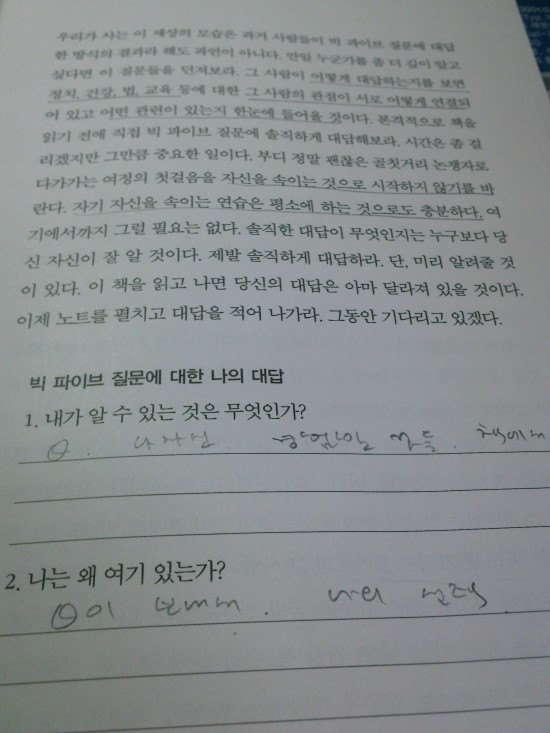 우리가 사는 이 세상의 모습은 과거 사람들이 빅 파이브 질문에 대답
한 방식의 결과라 해도 과언이 아니다. 만일 누군가를 좀 더 깊이 알고
싶다면 이 질문들을 던져보라. 그 사람이 어떻게 대답하는지를 보면
정치, 건강, 법, 교육 등에 대한 그 사람의 관점이 서로 어떻게 연결되
어 있고 어떤 관련이 있는지 한눈에 들어올 것이다. 본격적으로 책을
읽기 전에 직접 빅 파이브 질문에 솔직하게 대답해보라. 시간은 좀 걸
리겠지만 그만큼 중요한 일이다. 부디 정말 괜찮은 골칫거리 논쟁자로
다가가는 여정의 첫걸음을 자신을 속이는 것으로 시작하지 않기를 바
란다. 자기 자신을 속이는 연습은 평소에 하는 것으로도 충분하다. 여
기에서까지 그럴 필요는 없다. 솔직한 대답이 무엇인지는 누구보다 당
신 자신이 잘 알 것이다. 제발 솔직하게 대답하라. 단, 미리 알려줄 것
이 있다. 이 책을 읽고 나면 당신의 대답은 아마 달라져 있을 것이다.
이제 노트를 펼치고 대답을 적어 나가라. 그동안 기다리고 있겠다.
빅 파이브 질문에 대한 나의 대답
1. 내가 알 수 있는 것은 무엇인가?
나 자신.
2. 나는 왜 여기 있는가?
나의 선택.